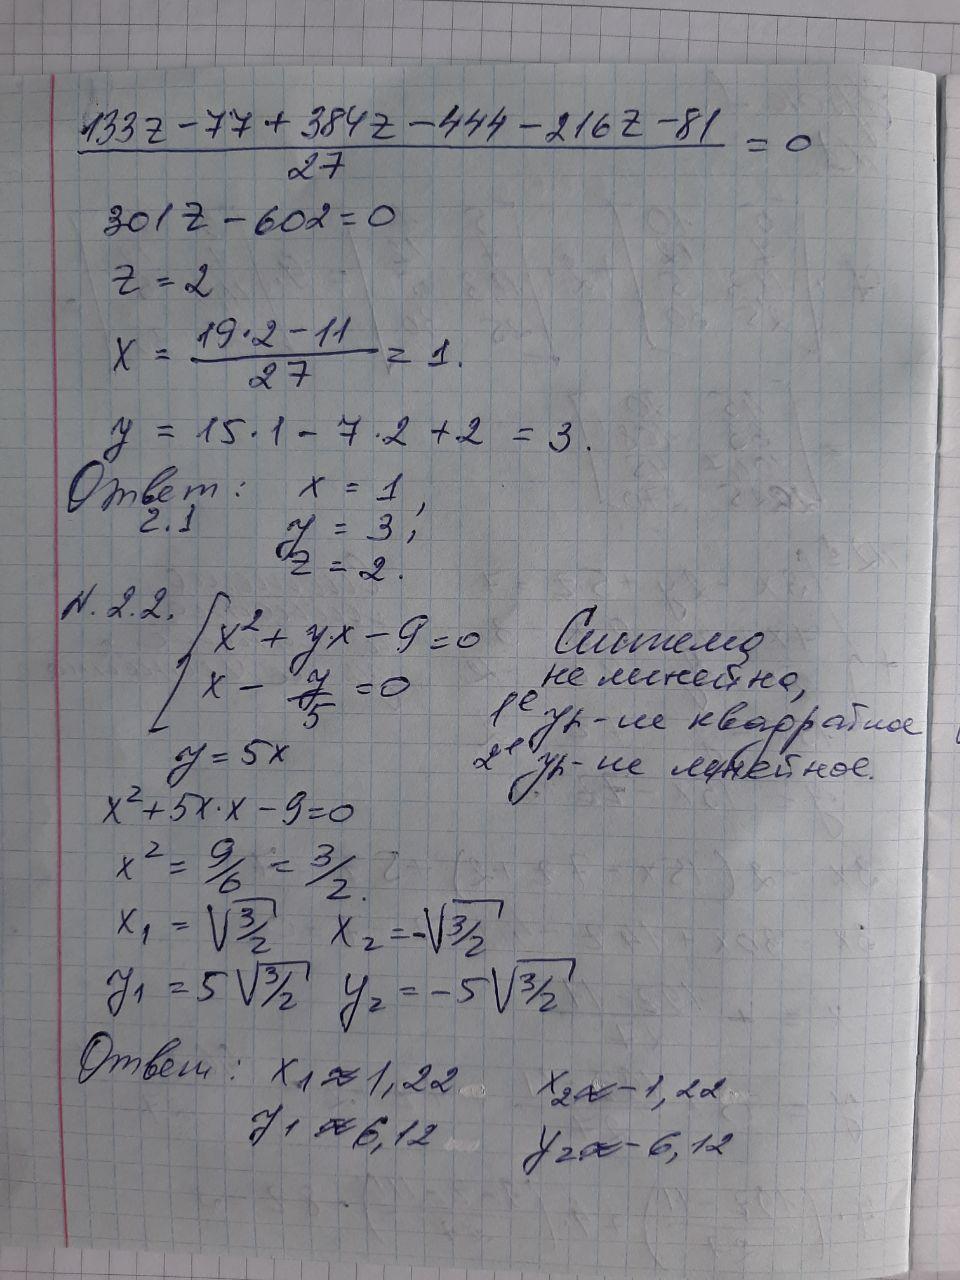 133z - 77 + 384z - 444 - 216z - 81
27
= 0
301z - 602 = 0
z = 2
x = (19·2 - 11)/27 = 1.
y = 15·1 - 7·2 + 2 = 3.
Ответ: x = 1,
2.1 y = 3;
z = 2.
N. 2.2. { x² + yx - 9 = 0 Система
x - y/5 = 0 не линейна,
1е ур-ие квадратное
y = 5x 2е ур-ие линейное.
x² + 5x·x - 9 = 0
x² = 9/6 = 3/2.
x₁ = √3/2 x₂ = -√3/2
y₁ = 5√3/2 y₂ = -5√3/2
Ответ: x₁ ≈ 1,22 x₂ ≈ -1,22
y₁ ≈ 6,12 y₂ ≈ -6,12